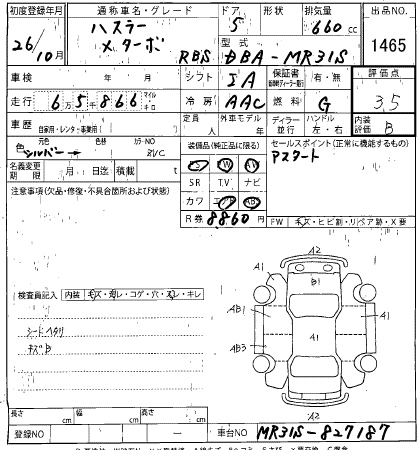 初度登録年月 通称車名・グレード ドア 形状 排気量 出品NO
26/10月 ハスラー メ、ターボ RBS 5 660 cc 1465
型式 DBA-MR31S
車検 年 月 日 シフト IA 保証書 有・無 評価点
走行 6万5千866 マイル キロ 冷房 AAC 燃料 G 3.5
車歴 自家用・レンタ・事業用( ) 定員 人 外車モデル 年 ディーラー 並行 ハンドル 左・右 内装評価 B
色 元色 シルバー 色替 カラーNO 装備品(純正品に限る) セールスポイント(正常に機能するもの)
PS PW AW アスタート
名義変更期限 月 日迄 積載 t SR T.V ナビ
注意事項(欠品・修復・不具合箇所および状態) カワ エアB ABS
R券 8860 円 FW キズ・ヒビ割・リペア跡・X要
A2
A1
B1
検査員記入 内装 キズ・汚レ・コゲ・穴・スレ・キレ
AB1 A1
シートヘタリ
A1
キズB
AB3
A2
長さ cm 幅 cm 高さ cm
登録NO 車台NO MR31S-827187